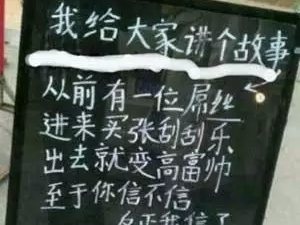 我给大家讲个故事
从前有一位屌丝
进来买张刮刮乐
出去就变高富帅
至于你信不信
反正我信了